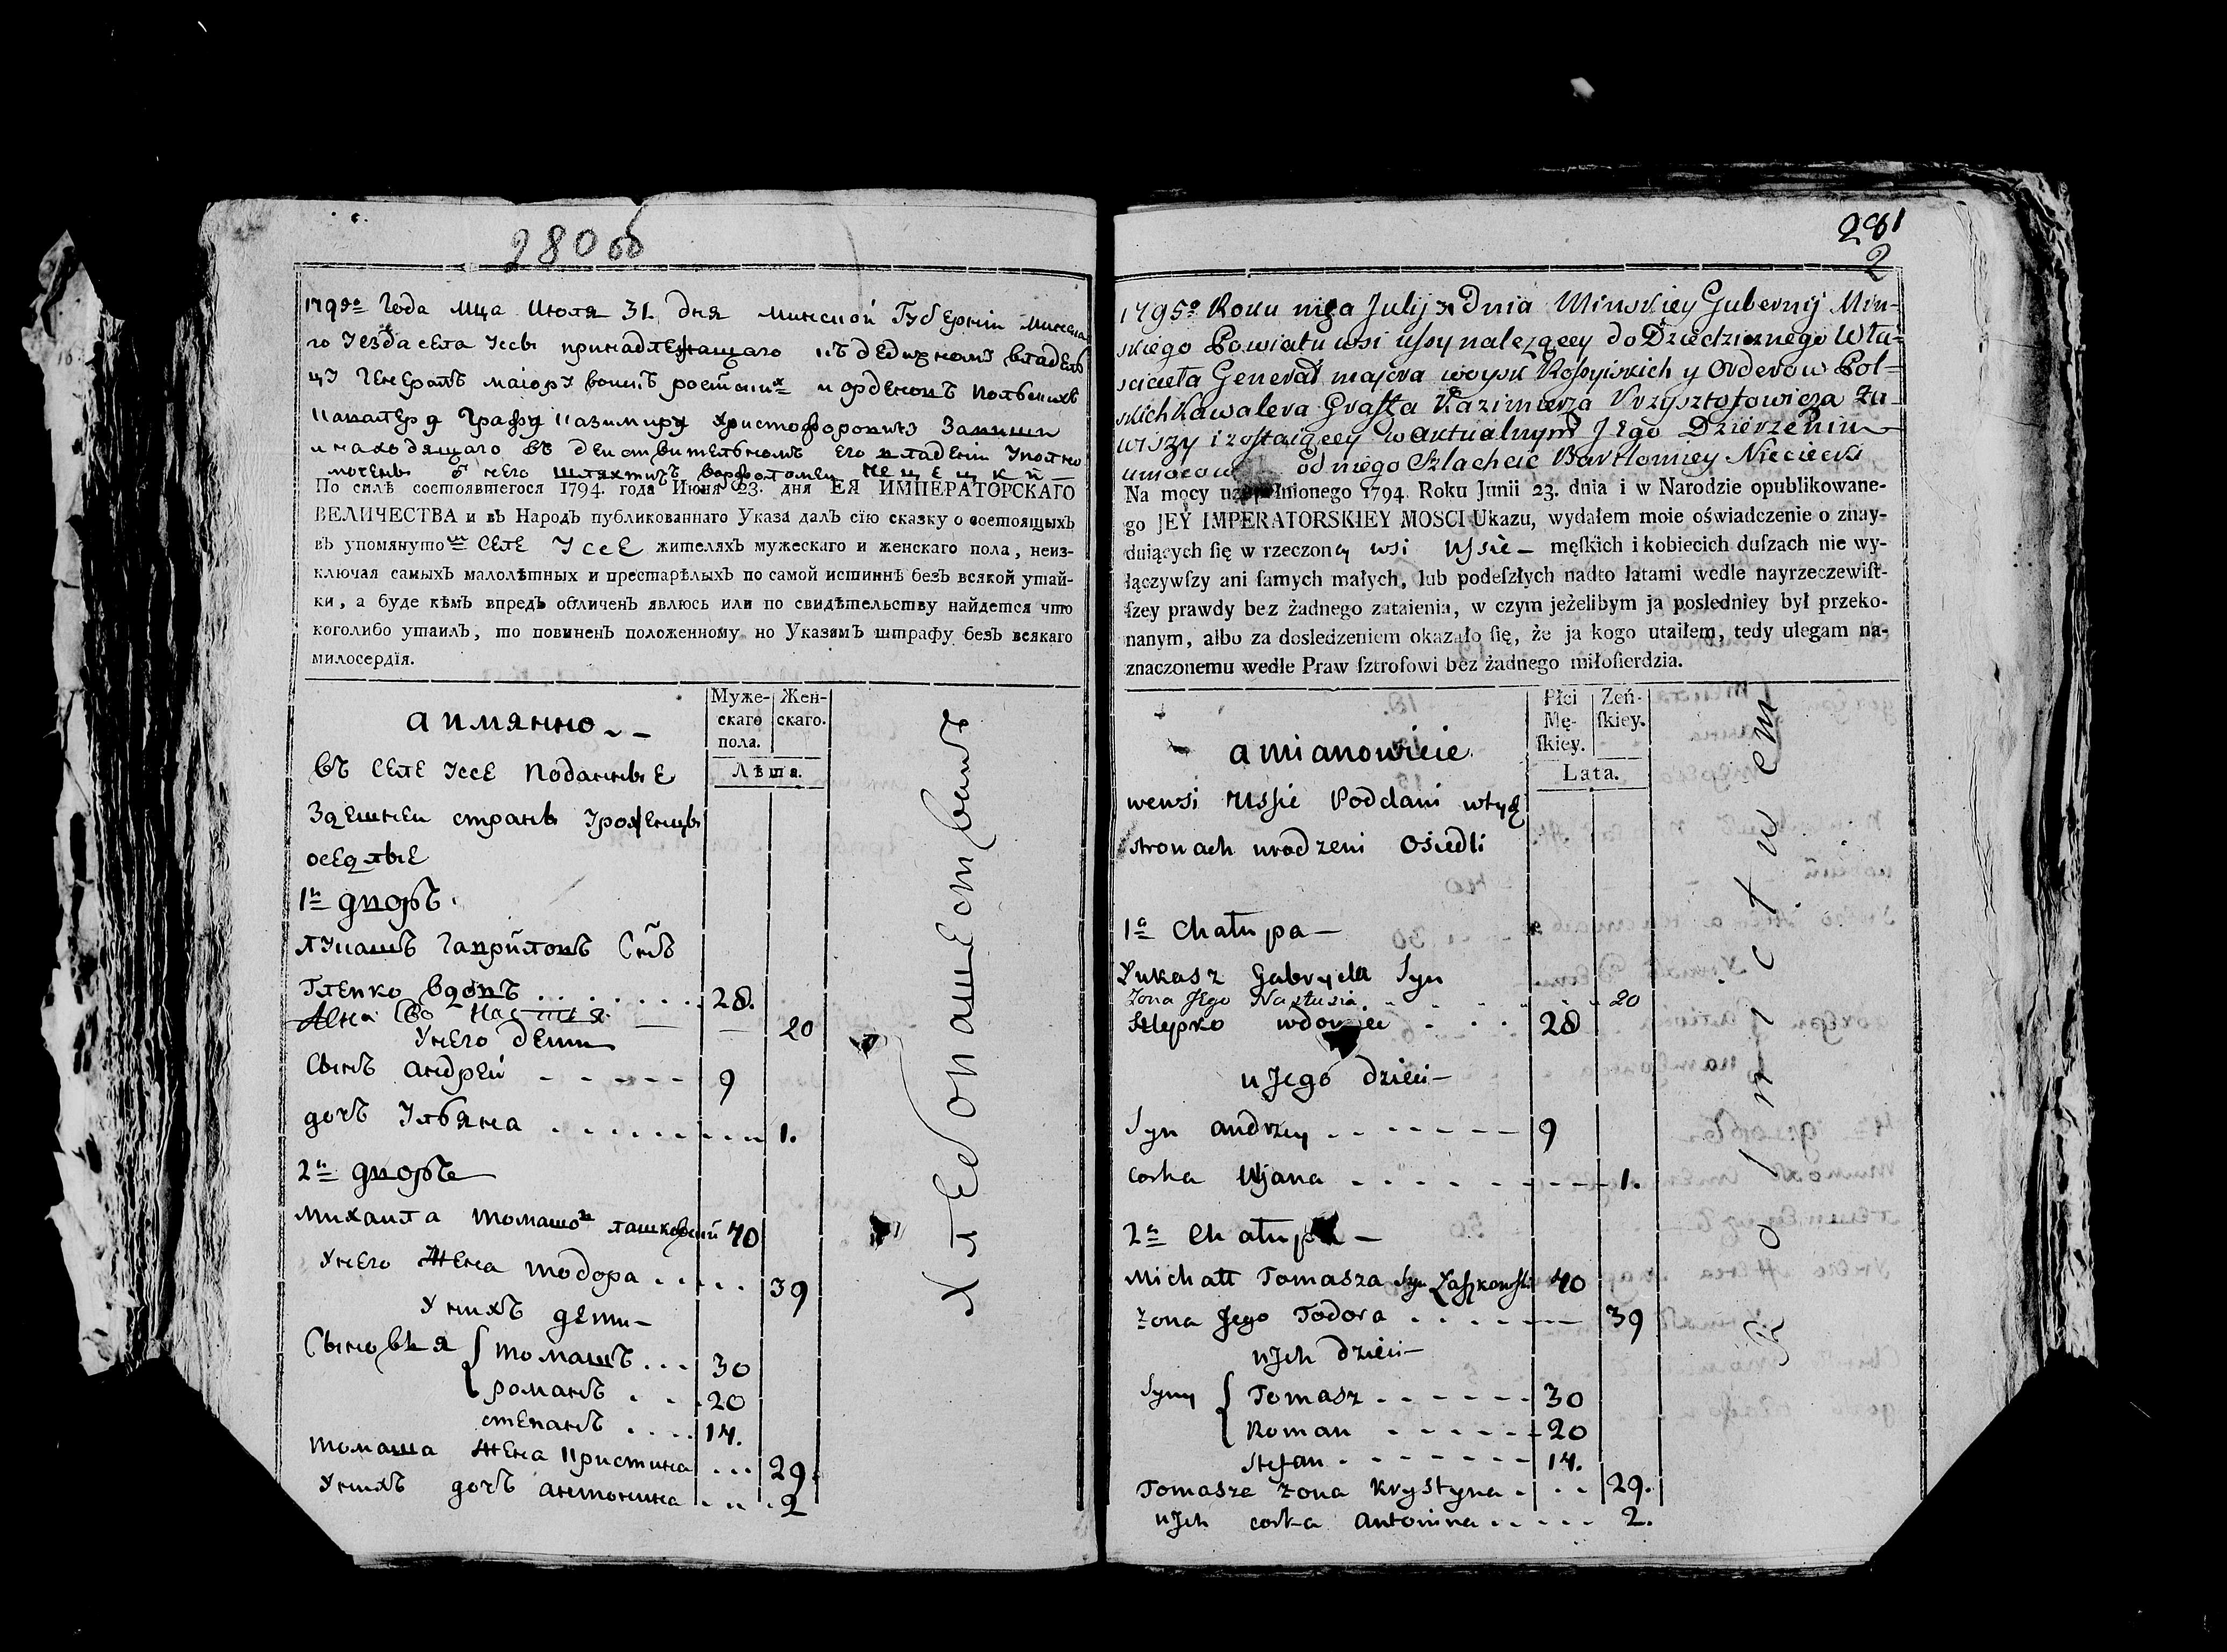 280 об
1795го Года мца Июля 31 дня минской Губернїи минска
го Уезда села Уссы принадлежащаго къ дедичному владель
цу Генералъ маіору воискъ российскихъ и орденовъ польскихъ
кавалеру Графу казимиру христофоровичу Завиши
и находящаго въ деиствительномъ его владении Уполно
мочены от него шляхтичъ варфоломеи нецецкй
По силѣ состоявшегося 1794. года Июня 23. дня ЕЯ ИМПЕРАТОРСКАГО
ВЕЛИЧЕСТВА и въ Народъ публикованнаго Указа далъ сїю сказку о состоящыхъ
въ упомянутом селе Уссе жителяхъ мужескаго и женскаго пола, неиз-
ключая самыхъ малолѣтныхъ и престарѣлыхъ по самой истиннѣ безъ всякой утай-
ки, а буде кѣмъ впредь обличенъ явлюсь или по свидѣтельству найдется что
коголибо утаилъ, то повиненъ положенному по Указамъ штрафу безъ всякаго
милосердїя.
а имянно
Муже-
скаго
пола.
Жен-
скаго.
Лѣта.
въ селе Уссе подданные
Здешнеи страны Уроженцы
оседлые
1й дворъ
лукашъ гаврйловъ Снъ
Глепко вдовъ 28.
Жена Ево Настася 20
У него дети
Сынъ андреи 9
дочъ Ульяна 1.
2й дворъ
михаила томашов лашковский 40
У него жена тодора 39
У нихъ дети
Сыновья { томашъ 30
романъ 20
степанъ 14.
томаша жена кристина 29.
У нихъ дочъ антонина 2
хлебопашествамъ
281
2
1795o Roku msca Julij 31 Dnia Minskiey Gubernij Min-
skiego Powiatu wsi Ussy nalezącey do Dziedzicznego Wła-
sciciela Generał majora woysk Rossyiskich y Orderow Pol-
skich Kawalera Graffa Kazimierza Krzysztofowicza Za-
wiszy i zostaiącey w aktualnym Jego Dzierzeniu
umocow od niego Szlachcic Bartłomiey Nieciecki
Na mocy uzupełnionego 1794. Roku Junii 23. dnia i w Narodzie opublikowane-
go JEY IMPERATORSKIEY MOSCI Ukazu, wydałem moie oświadczenie o znay-
duiących ſię w rzeczoney wsi Ussie męſkich i kobiecich duſzach nie wy-
łączywſzy ani ſamych małych, lub podeſzłych nadto latami wedle nayrzeczewiſt-
ſzey prawdy bez żadnego zataienia, w czym jeżelibym ja posledniey był przeko-
nanym, albo za dosledzeniem okazało ſię, że ja kogo utaiłem, tedy ulegam na-
znaczonemu wedle Praw ſztrofowi bez żadnego miłoſierdzia.
a mianowicie
Płci
Mę-
ſkiey.
Zeń-
ſkiey.
Lata.
wewsi Ussie Poddani wtych
stronach urodzeni Osiedli
1a Chałupa
Łukasz Gabryela Syn
Zona Jego Nastusia 20
Hlepko wdowiec 28
u Jego dzieci
Syn andrzey 9
corka Uljana 1.
2a Chałupa
Michał Tomasza Syn Łaszkowski 40
zona Jego Todora 39
u Ich dzieci
Syny { Tomasz 30
Roman 20
Stefan 14.
Tomasza zona Krystyna 29.
u Ich corka antonina 2.
Rolnictwem